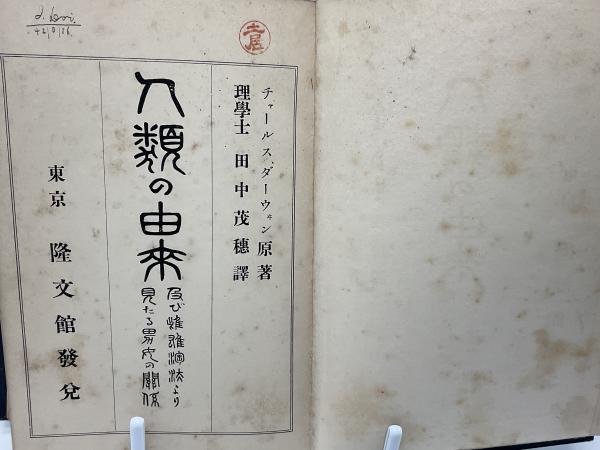 土居
チャールス、ダーウヰン 原著
理學士 田中茂穗 譯
人類の由來
及び雌雄淘汰より
見たる男女の關係
東京 隆文館發兌